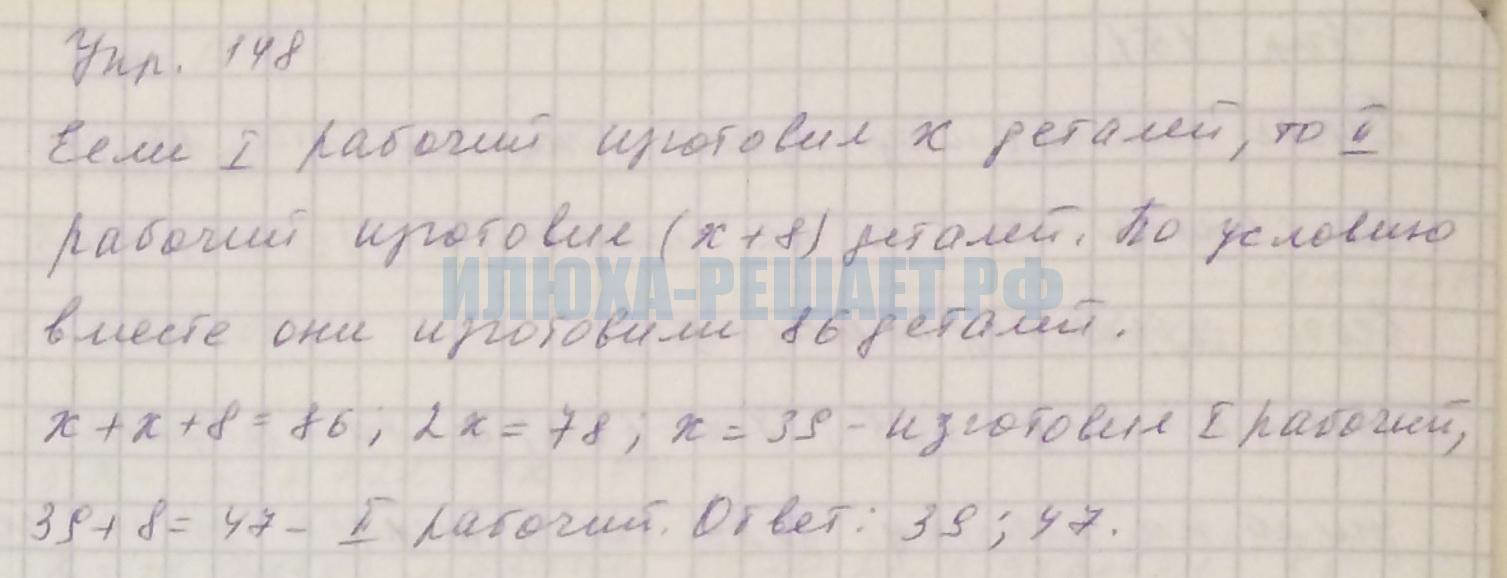 Упр. 148
Если I рабочий изготовил x деталей, то II
рабочий изготовил (x+8) деталей. По условию
ИЛЮХА-РЕШАЕТ.РФ
вместе они изготовили 86 деталей.
x+x+8=86; 2x=78; x=39 - изготовил I рабочий,
39+8=47- II рабочий. Ответ: 39; 47.